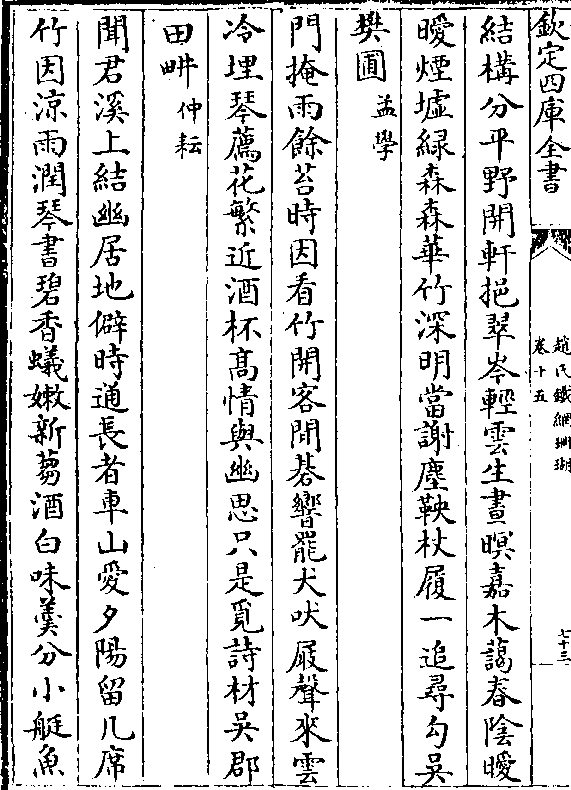 欽定四庫全書
趙氏鐵網珊瑚
卷十五
七十三
結構分平野開軒挹翠岑輕雲生晝暝嘉木藹春陰曖
曖煙墟緑森森華竹深明當謝塵鞅杖履一追尋勾吳
樊圃 孟學
門掩雨餘苔時因看竹開客閒棊響罷犬吠屐聲來雲
冷埋琴薦花繁近酒杯髙情與幽思只是覓詩材吳郡
田畊 仲耘
聞君溪上結幽居地僻時通長者車山愛夕陽留几席
竹因涼雨潤琴書碧香蟻嫩新蒭酒白味羮分小艇魚